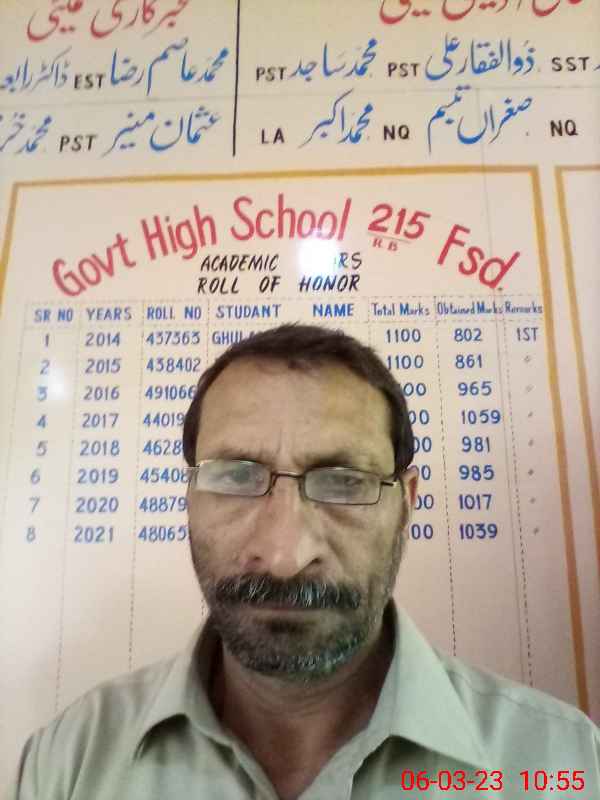 خبر کاری کمیٹی
ڈاکٹر رابعہ EST محمد عاصم رضا PST محمد ساجد PST ذوالفقار علی SST
محمد PST عثمان منیر LA محمد اکبر NQ صغراں تبسم NQ
Govt High School 215 R.B Fsd.
ACADEMIC RS
ROLL OF HONOR
SR NO YEARS ROLL NO STUDANT NAME Total Marks Obtained Marks Remarks
1 2014 437363 GHUL 1100 802 1ST
2 2015 438402 1100 861 "
3 2016 491066 00 965 "
4 2017 44019 00 1059 "
5 2018 4628 00 981 "
6 2019 45408 0 985 "
7 2020 48879 00 1017 "
8 2021 48065 00 1039 "
06-03-23 10:55